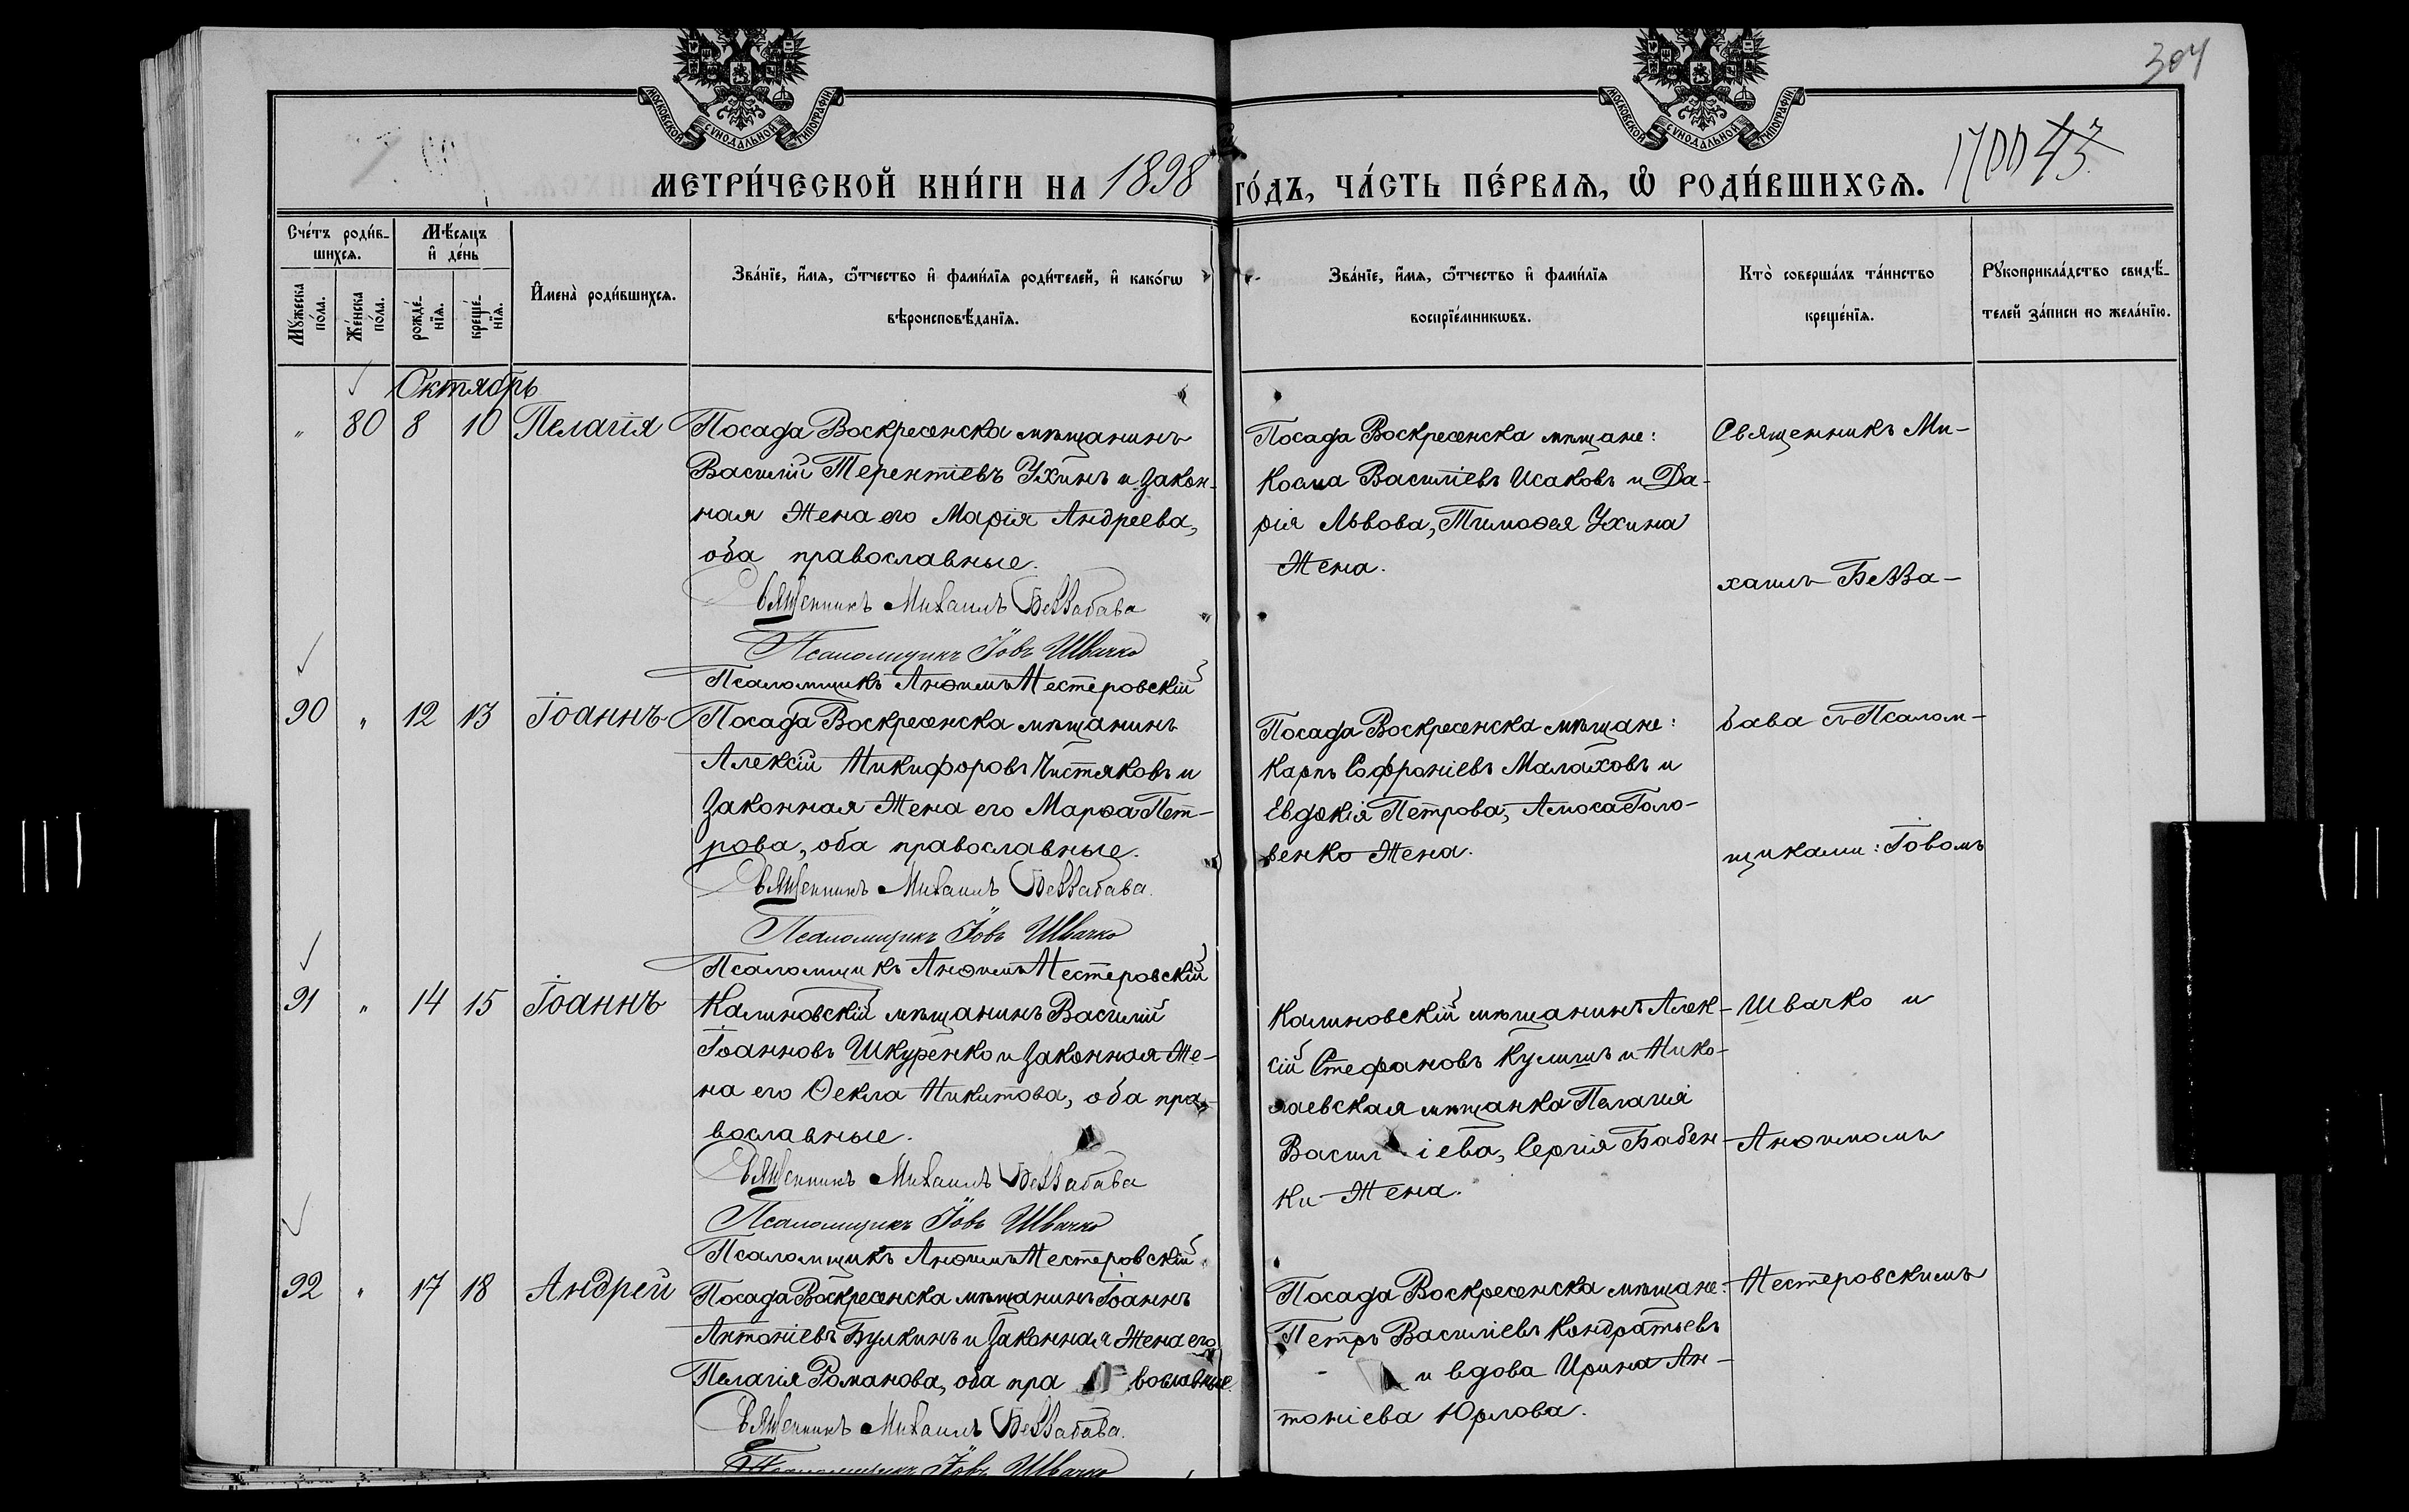 304
МОСКОВСКОЙ СѴНОДАЛЬНОЙ ТИПОГРАФІИ
МОСКОВСКОЙ СѴНОДАЛЬНОЙ ТИПОГРАФІИ
МЕТРИ́ЧЕСКОЙ КНИ́ГИ НА 1898 ГО́ДЪ, ЧА́СТЬ ПЕ́РВАѦ, Ѽ РОДИ́ВШИХСѦ. 1700
Сче́тъ роди́в-
шихсѧ.
Мꙋ́жеска по́ла.
Же́нска по́ла.
Мѣ́сѧцъ
и҆ де́нь
рожде́-
нїѧ.
креще́-
нїѧ.
И҆мена̀ роди́вшихсѧ.
Зва́нїе, и҆́мѧ, ѻ҆́тчество и҆ фами́лїѧ роди́телей, и҆ како́гѡ
вѣроисповѣ́данїѧ.
Зва́нїе, и҆́мѧ, ѻ҆́тчество и҆ фами́лїѧ
воспрїе́мникѡвъ.
Кто̀ соверша́лъ та́инство
креще́нїѧ.
Рꙋкоприкла́дство свидѣ́-
телей за́писи по жела́нїю.
Октябрь
" 80 8 10 Пелагія
Посада Воскресенска мѣщанинъ
Василій Терентіевъ Ухинъ и закон-
ная жена его Марія Андреева,
оба православные.
Священникъ Михаилъ Беззабава
Псаломщикъ Іовъ Швачко
Псаломщикъ Анѳимъ Нестеровскій
Посада Воскресенска мѣщане:
Косма Василіевъ Исаковъ и Да-
рія Львова, Тимоѳея Ухина
жена.
Священникъ Ми-
хаилъ Безза-
90 " 12 13 Іоаннъ
Посада Воскресенска мѣщанинъ
Алексій Никифоровъ Чистяковъ и
законная жена его Марѳа Пет-
рова, оба православные.
Священникъ Михаилъ Беззабава.
Псаломщикъ Іовъ Швачко
Псаломщикъ Анѳимъ Нестеровскій
Посада Воскресенска мѣщане:
Карпъ Софроніевъ Малаховъ и
Евдокія Петрова, Амоса Голо-
венко жена.
бава съ Псалом-
щиками: Іовомъ
91 " 14 15 Іоаннъ
Калиновскій мѣщанинъ Василій
Іоанновъ Шкуренко и законная же-
на его Ѳекла Никитова, оба пра-
вославные.
Священникъ Михаилъ Беззабава
Псаломщикъ Іовъ Швачко
Псаломщикъ Анѳимъ Нестеровскій
Калиновскій мѣщанинъ Алек-
сій Стефановъ Кулишъ и Нико-
лаевская мѣщанка Пелагія
Василіева, Сергія Бабен-
ки жена.
Швачко и
Анѳимомъ
92 " 17 18 Андрей
Посада Воскресенска мѣщанинъ Іоаннъ
Антоніевъ Булкинъ и законная жена его
Пелагія Романова, оба православные.
Священникъ Михаилъ Беззабава.
Псаломщикъ Іовъ Швачко
Посада Воскресенска мѣщане:
Петръ Василіевъ Кондратьевъ
и вдова Ирина Ан-
тоніева Юрлова.
Нестеровскимъ